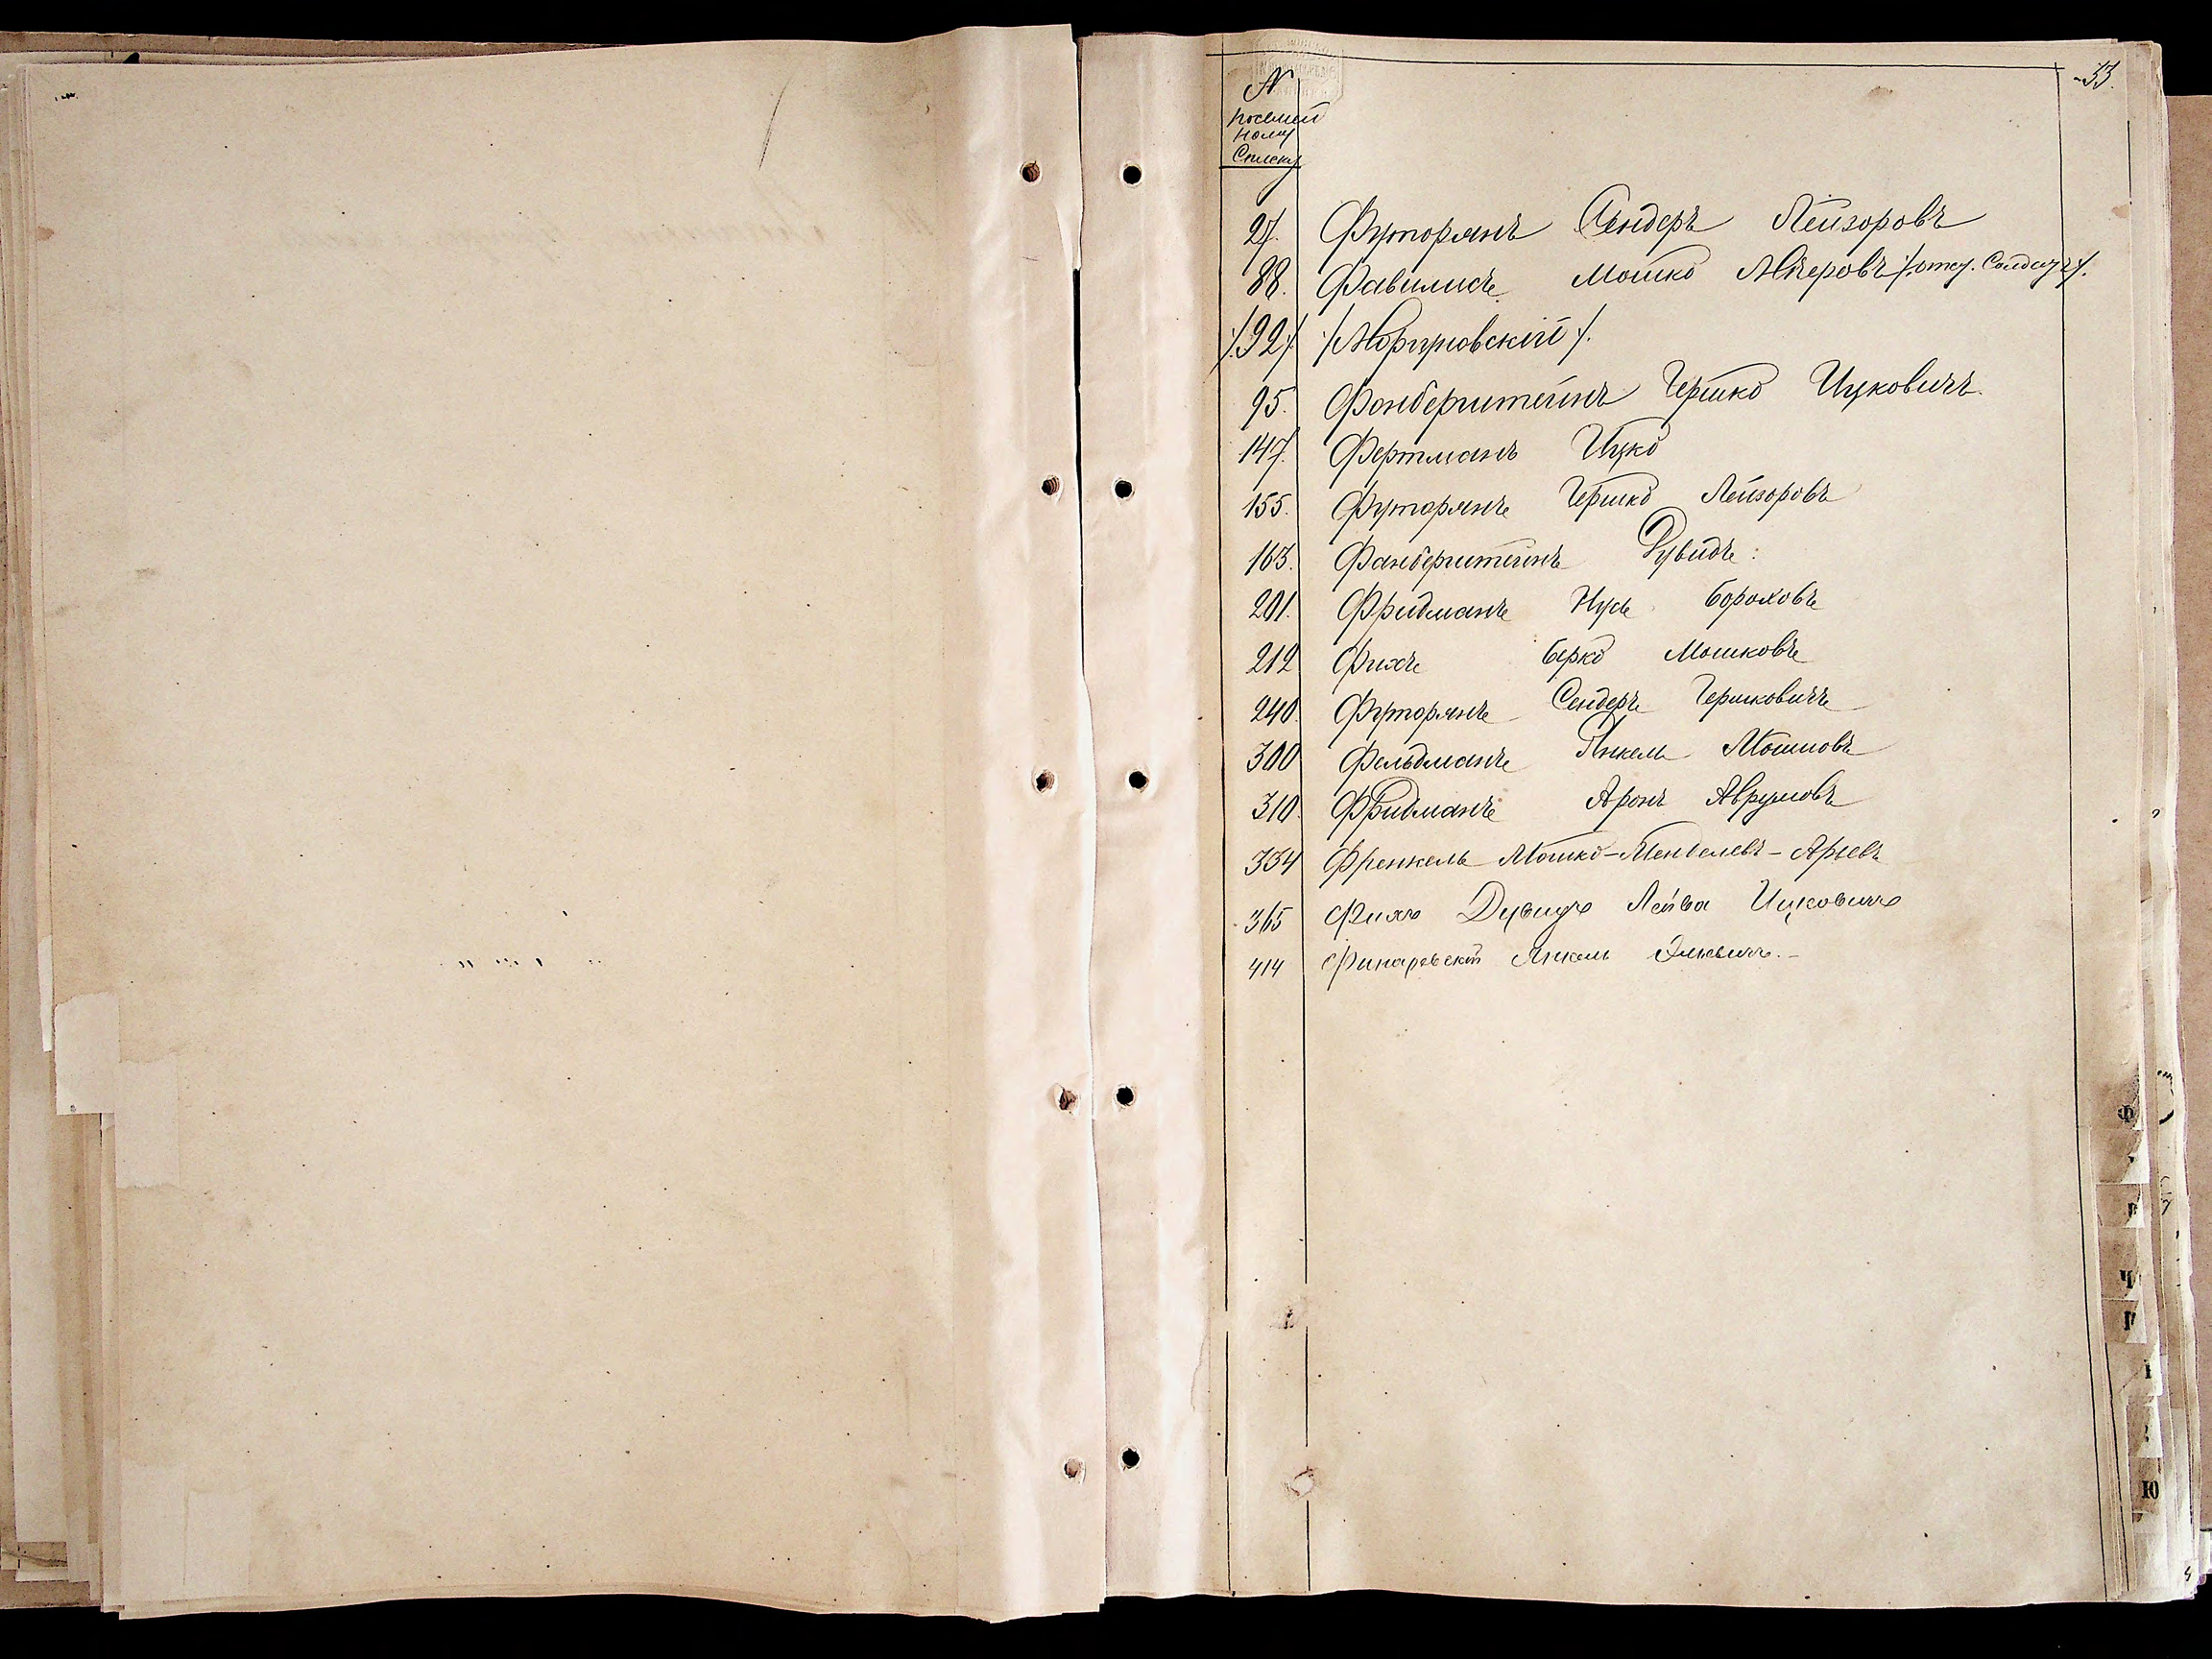 33.
№
посемей
ному
Списку
27. Футорянъ Сендеръ Лейзоровъ
88. Фавилисъ Мошко Мееровъ /:отст. Солдатъ:/
/:92:/ /:Нортновскій:/
95. Фонберштейнъ Гершко Ицковичъ
147. Фертманъ Ицко
155. Футорянъ Гершко Лейзоровъ
163. Фанберштейнъ Дувидъ:
201. Фридманъ Нусъ Бороховъ
212 Фихъ Берко Мошковъ
240. Футорянъ Сендеръ Гершковичъ
300 Фельдманъ Янкель Мошковъ
310. Фридманъ Аронъ Аврумовъ
334 Френкель Мошко-Менделевъ-Арьевъ
365 Фихъ Дувидъ Лейба Ицковичъ
414 Финаровскій Янкель Элювичъ.-
Ф
Ч
Ю